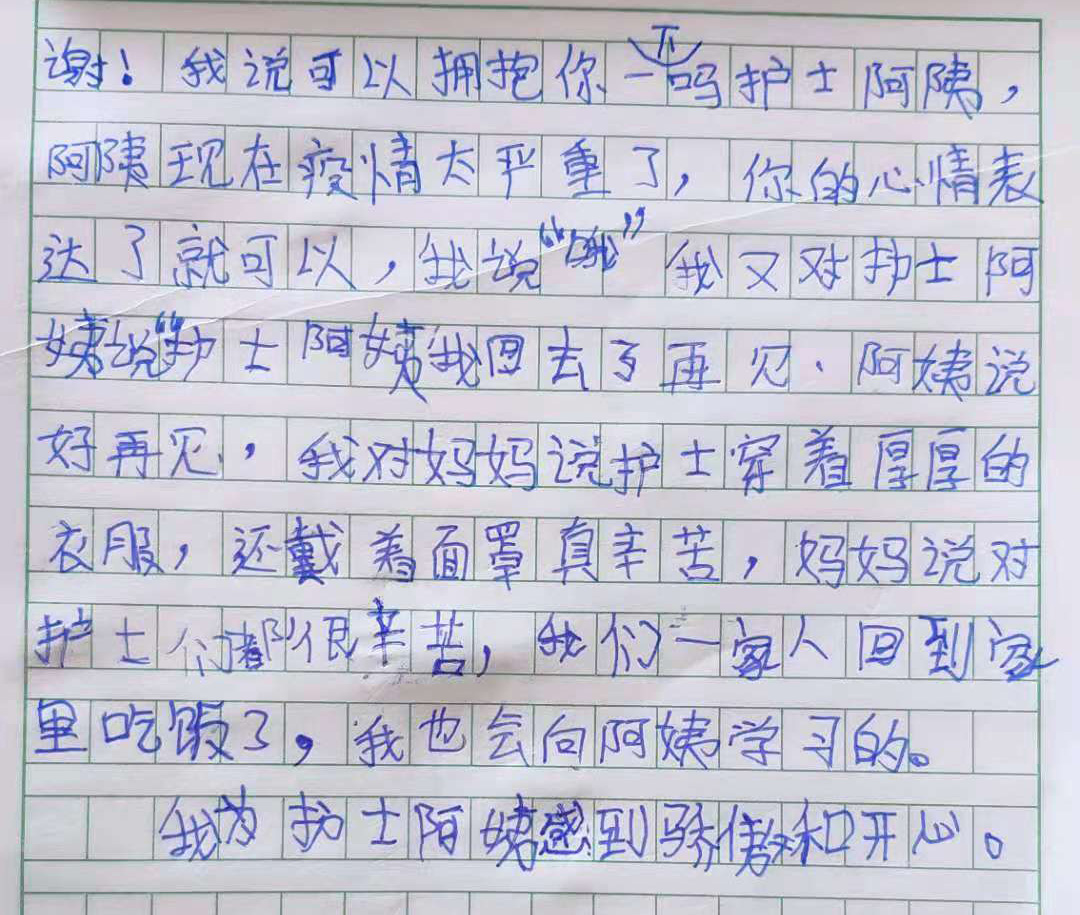 谢！我说可以拥抱你一下吗护士阿姨，
阿姨现在疫情太严重了，你的心情表
达了就可以，我说“哦”我又对护士阿
姨说“护士阿姨我回去了再见.阿姨说
好再见，我对妈妈说护士穿着厚厚的
衣服，还戴着面罩真辛苦，妈妈说对
护士们都很辛苦，我们一家人回到家
里吃饭了，我也会向阿姨学习的。
我为护士阿姨感到骄傲和开心。